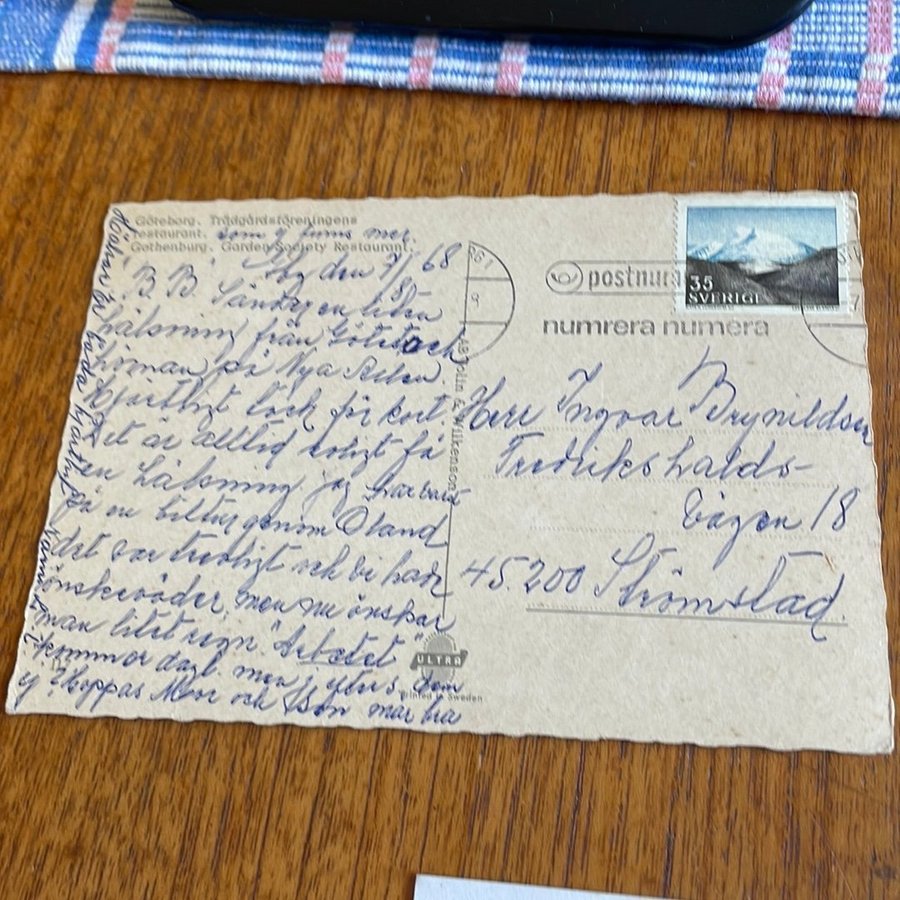 Göteborg. Trädgårdsföreningens
restaurant. som ej finns mer.
Gothenburg. Garden Society Restaurant.
Gbg den 7/8 68
B B. Sänder en liten
hälsning från Göteb och
hörnan på Nya
Hjärtligt tack för kort
Det är alltid roligt få
en hälsning jag har varit
på en biltur genom Öland
det var trevligt och vi hade
önskeväder, men nu önskar
man litet regn. "Arbetet"
kommer dagl. men j. ytters. dem
ej? Hoppas Mor och Son mår bra
postnum
numrera numera
35
SVERIGE
AB Almqvist &
Herr Ingvar Brynildsen
Fredrikshalds-
vägen 18
45.200 Strömstad.
ULTRA
Printed in Sweden